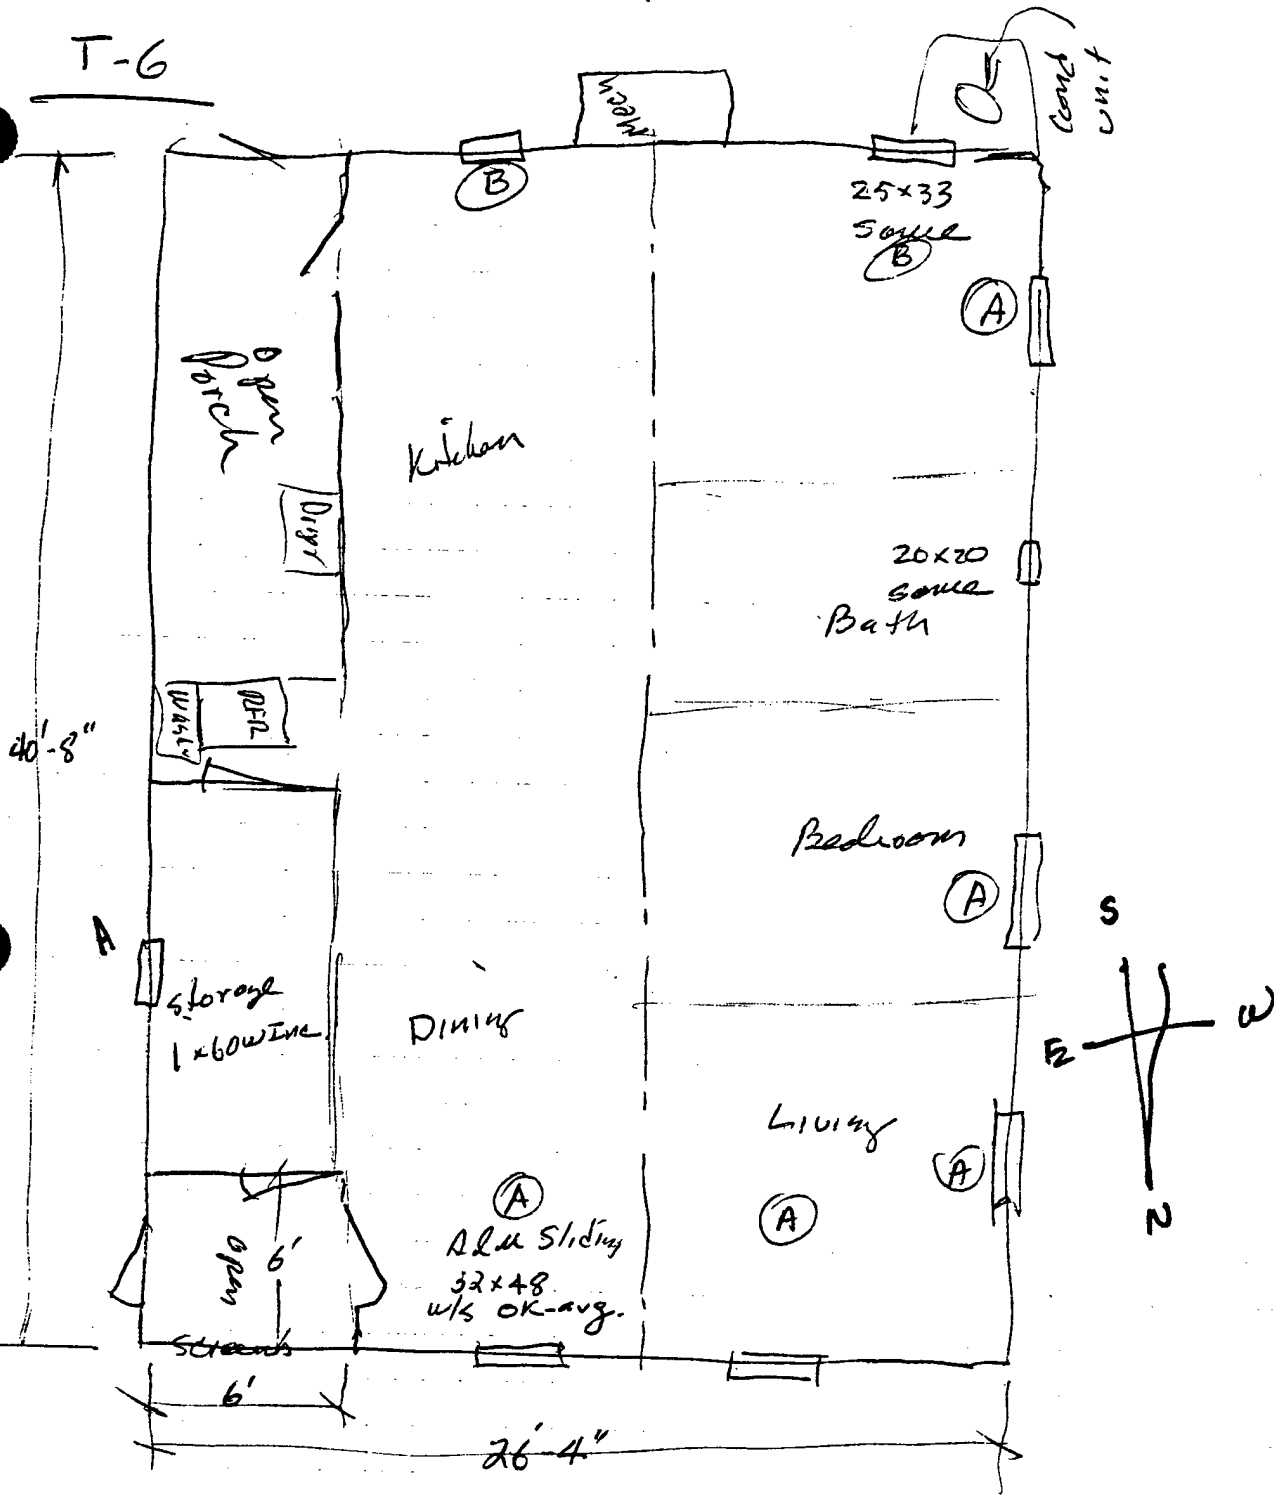 T-6
Mech
Cond
unit
B
25x33
same
B
A
Open
Porch
Kitchen
Dryr
20x20
same
Bath
Wash
RFR
40'-8"
Bedroom
A
A
S
E
W
N
Storage
1x60w Inc.
Dining
Living
A
A
A
Alu Sliding
32x48
w/s OK-avg.
Open
6'
Screens
6'
26'-4"